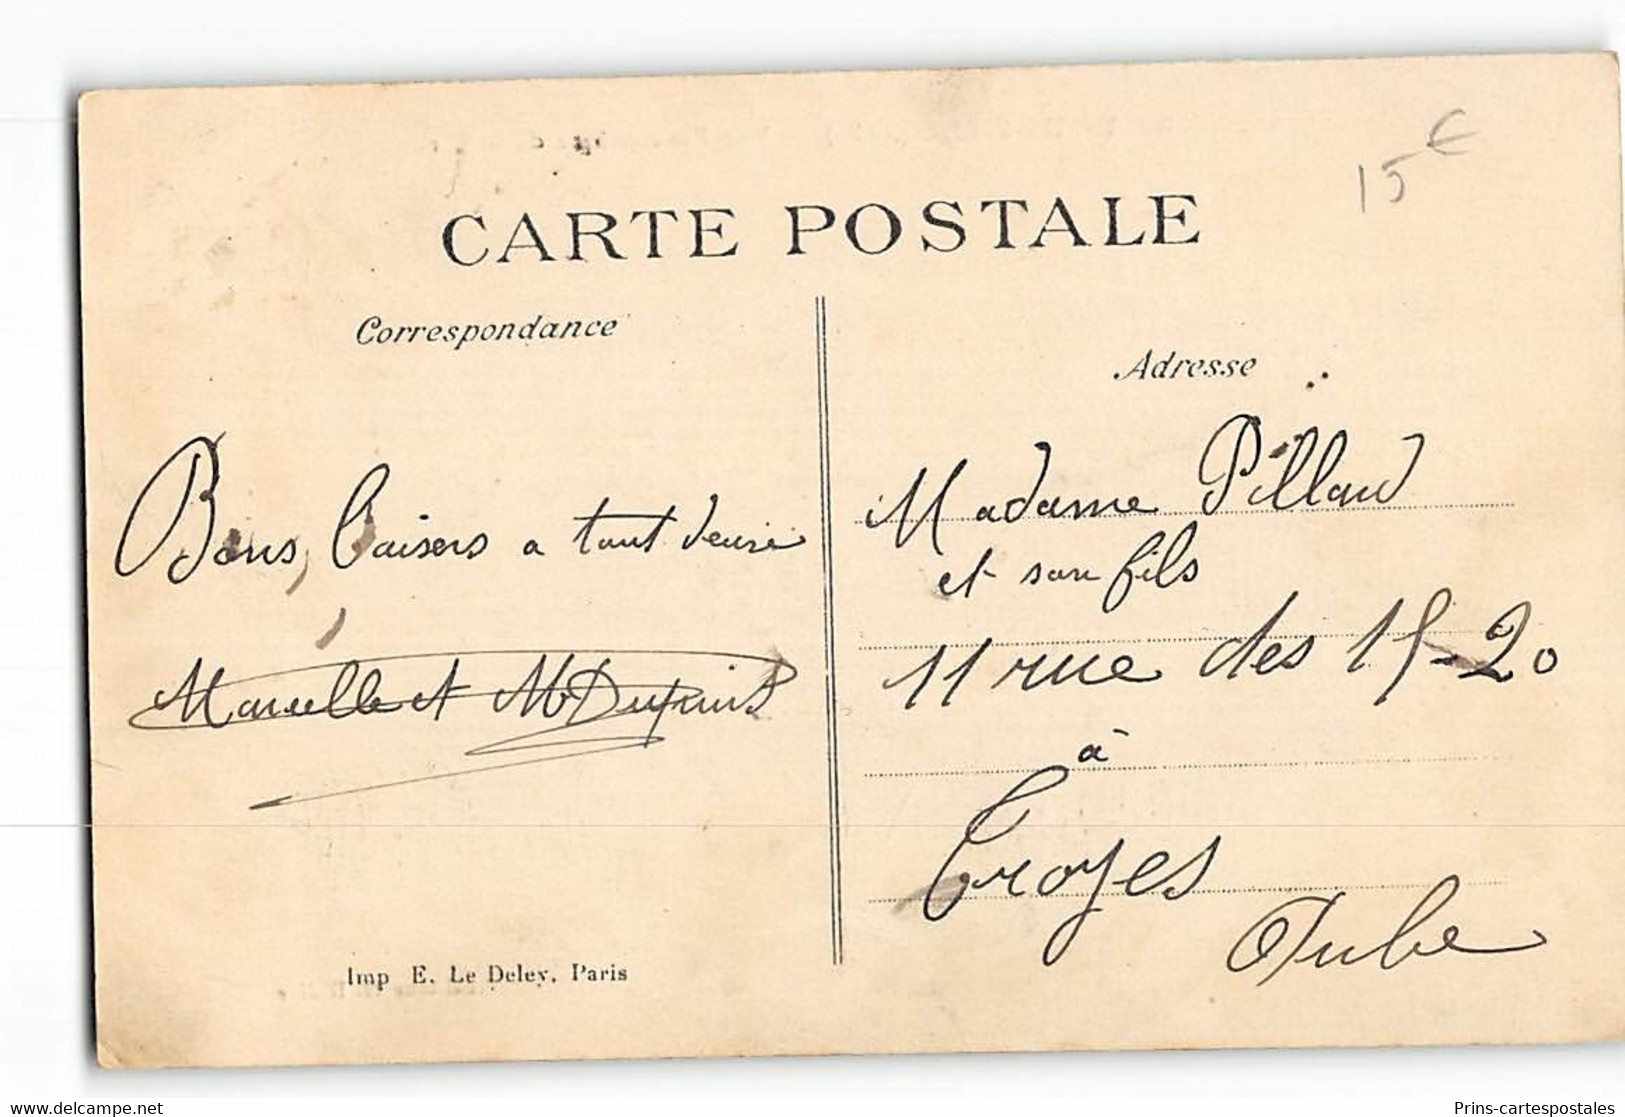 15 €
CARTE POSTALE
Correspondance
Adresse
Bons, baisers a tout
Marcelle et M Dupuis
Madame Pillaud
et son fils
11 rue des 15-20
à
Troyes
Aube
Imp E. Le Deley, Paris
delcampe.net
Prins-cartespostales